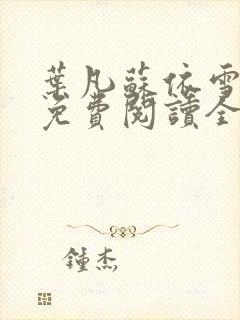 葉凡蘇依雪
免費閱讀全
鍾杰